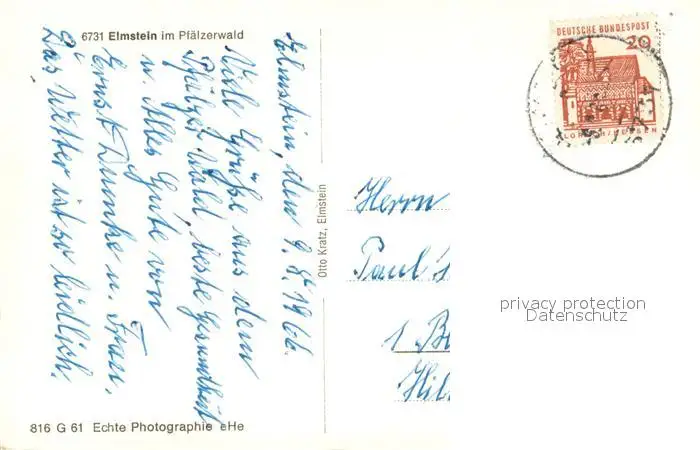 6731 Elmstein im Pfälzerwald
Elmstein, den 9. 5. 1966.
Viele Grüße aus dem
Pfälzer Wald, beste Gesundheit
u. Alles Gute von
Ernst Dumke u. Frau.
Das Wetter ist so leidlich.
816 G 61 Echte Photographie eHe
Otto Kratz, Elmstein
DEUTSCHE BUNDESPOST
20
Herrn
Paul
1 B
Hil
privacy protection
Datenschutz